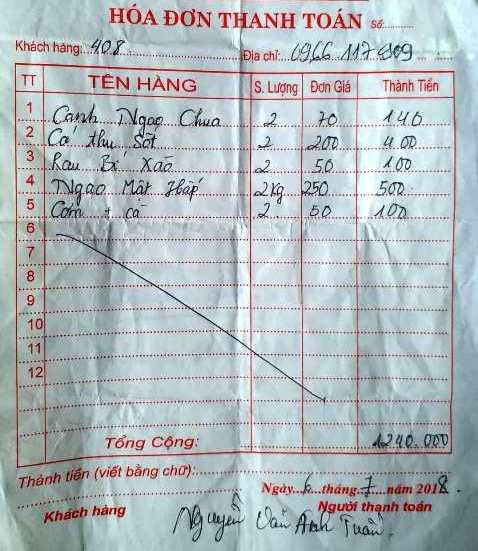 HÓA ĐƠN THANH TOÁN Số
Khách hàng: 408 Địa chỉ: 0966 117 909
TT TÊN HÀNG S. Lượng Đơn Giá Thành Tiền
1 Canh Ngao Chua 2 70 140
2 Cá thu Sốt 2 200 400
3 Rau Bí Xào 2 50 100
4 Ngao Mật Hấp 2kg 250 500
5 Cơm + cà 2 50 100
6
7
8
9
10
11
12
Tổng Cộng: 1240.000
Thành tiền (viết bằng chữ):
Ngày 6 tháng 7 năm 2018.
Khách hàng Người thanh toán
Nguyễn Văn Anh Tuấn.